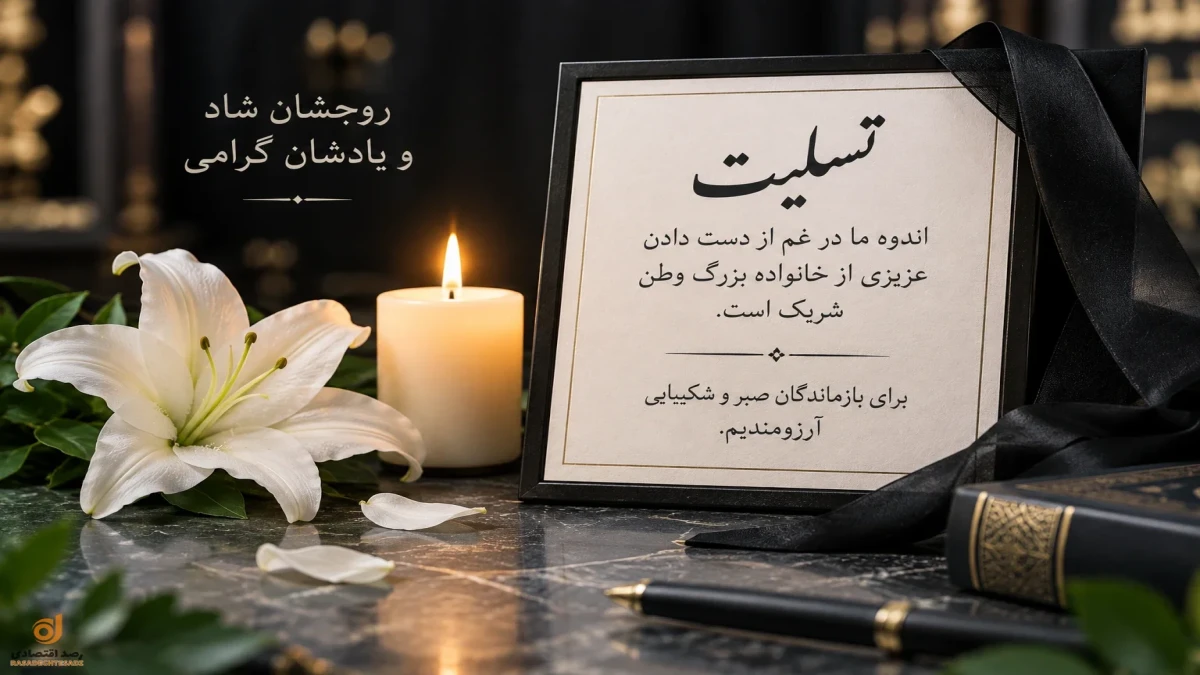 روجشان شاد
و یادشان گرامی
تسلیت
اندوه ما در غم از دست دادن
عزیزی از خانواده بزرگ وطن
شریک است.
برای بازماندگان صبر و شکیبایی
آرزومندیم.
رصد اقتصادی